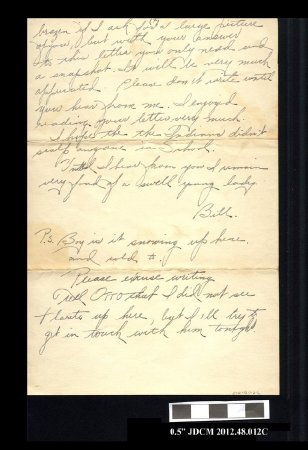 brazen if I ask for a large picture
of you, but with your answer
to this letter you only need send
a snapshot. It will be very much
appreciated. Please don't write until
you hear from me. I enjoyed
reading your letter very much.
I hope the the Indians didn't
scalp anyone in School.
Until I hear from you I remain
very fond of a swell young lady.
Bill.
P.S. Boy is it snowing up here.
and cold to.
Please excuse writing
Tell that I did not see
up here, but I'll try to
get in touch with him tonight.
0.5" JDCM 2012.48.012C